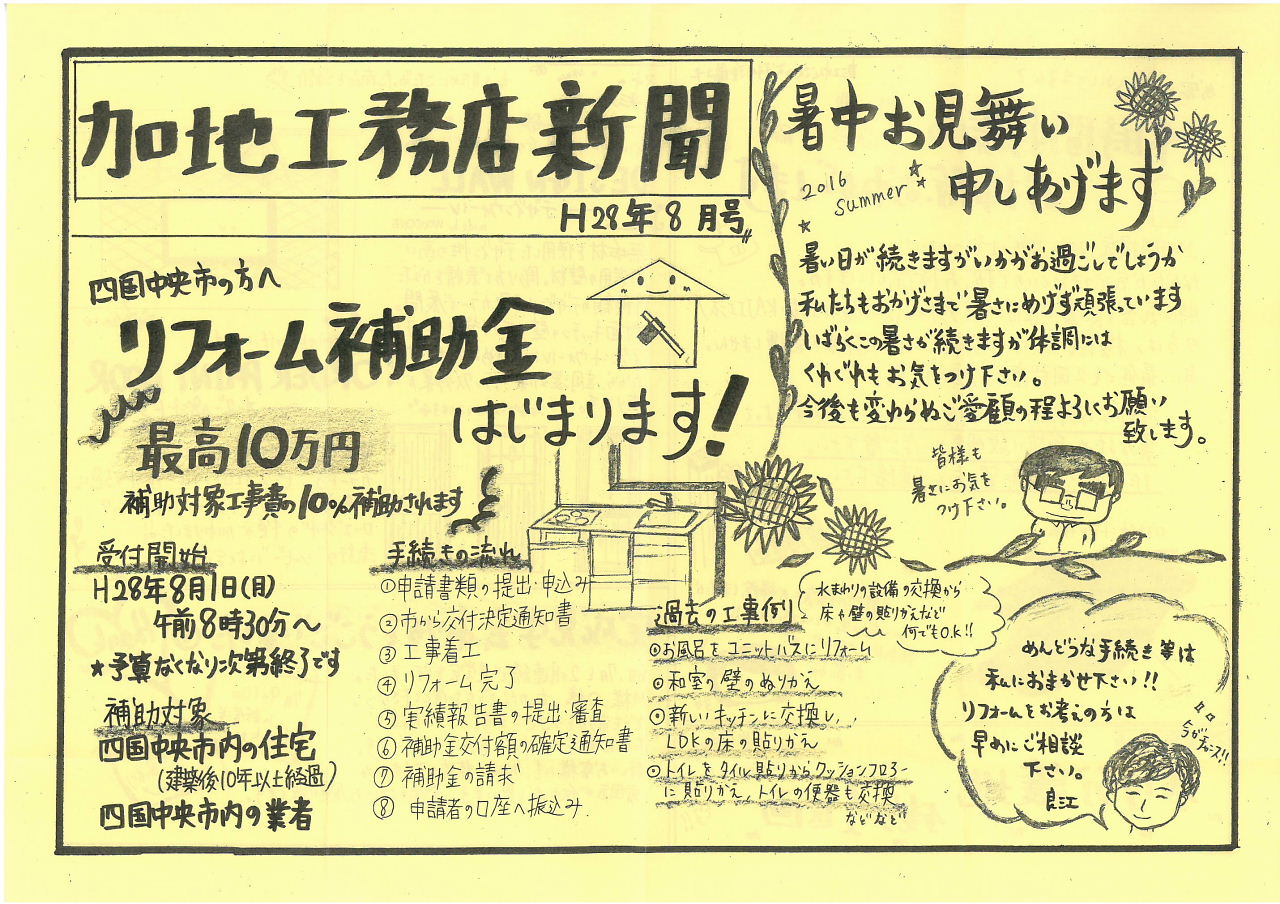 加地工務店新聞
H28年8月号
四国中央市の方へ
リフォーム補助金
はじまります!
最高10万円
補助対象工事費の10%補助されます
受付開始
H28年8月1日(月)
午前8時30分〜
★予算なくなり次第終了です
補助対象
四国中央市内の住宅
(建築後10年以上経過)
四国中央市内の業者
手続きの流れ
①申請書類の提出・申込み
②市から交付決定通知書
③工事着工
④リフォーム完了
⑤実績報告書の提出・審査
⑥補助金交付額の確定通知書
⑦補助金の請求
⑧申請者の口座へ振込み
過去の工事例
水まわりの設備の交換から
床や壁の貼りかえなど
何でもO.K!!
⦿お風呂をユニットバスにリフォーム
⦿和室の壁のぬりかえ
⦿新しいキッチンに交換し、
LDKの床の貼りかえ
⦿トイレをタイル貼りからクッションフロアー
に貼りかえ、トイレの便器も交換
などなど
暑中お見舞い
申しあげます
2016
summer
暑い日が続きますがいかがお過ごしでしょうか
私たちもおかげさまで暑さにめげず頑張っています
しばらくこの暑さが続きますが体調には
くれぐれもお気をつけ下さい。
今後も変わらぬご愛顧の程よろしくお願い
致します。
皆様も
暑さにお気を
つけ下さい。
めんどうな手続き等は
私におまかせ下さい!!
リフォームをお考えの方は
早めにご相談
下さい。
良江
今がチャンス!!